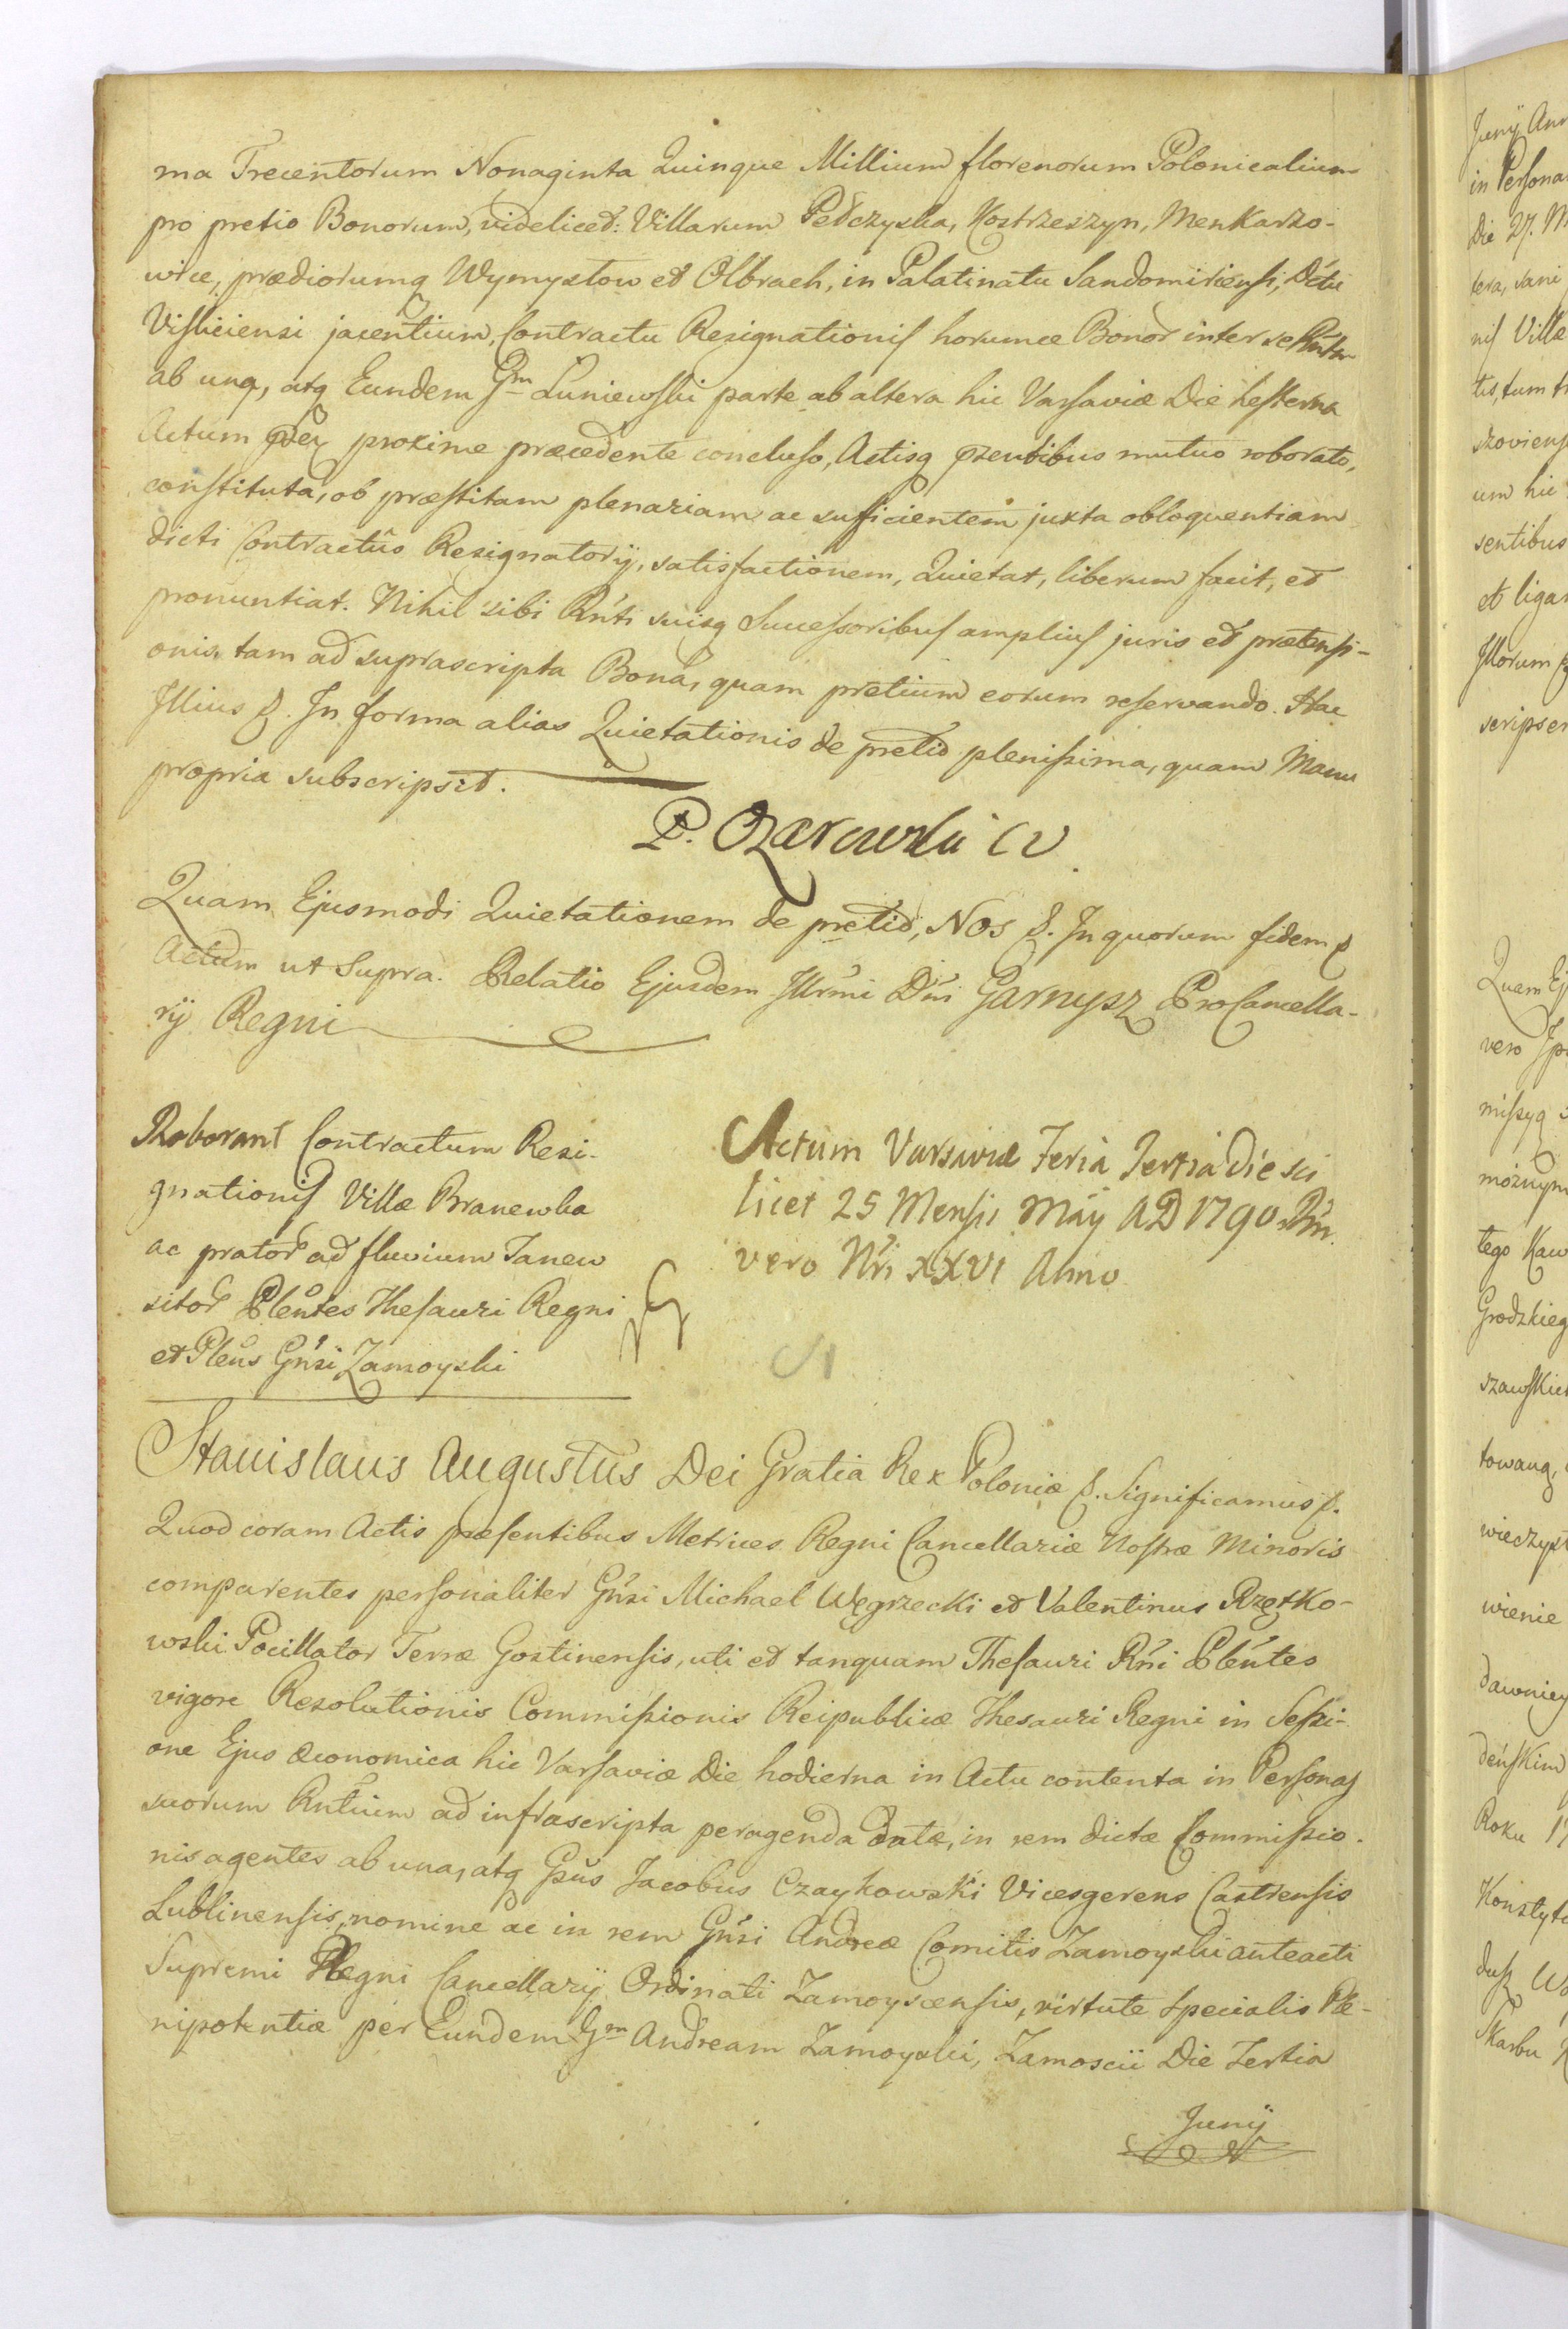 ma Trecentorum Nonaginta Quinque Millium florenorum Polonicalium
pro pretio Bonorum, videliced: Villarum Pełczyska, Kostrzeszyn, Menkarzo-
wice, prædiorumq Wymysłow et Olbrach, in Palatinatu Sandomiriensi, Dctu
Vislieiensi jacentium, Contractu Resignationis horumce Bonor inter se Rntem
ab una, atq Eundem Gm Łuniewski parte ab altera hic Varsaviæ Die hesterna
Actum proxime præcedente concluso, Actisq pzentibus mutuo roborato,
constituta, ob præstitam plenariam ac sufficientem juxta obloquentiam
dicti Contractûs Resignatorij, satisfactionem, Quietat, liberum facit, et
pronuntiat. Nihil sibi Rnti suisq Successoribus amplius juris et prætensi-
onis tam ad suprascripta Bona, quam pretium eorum reservando. Hac
Illius p. In forma alias Quietationis de pretio plenissima, quam Manu
propria subscripsit.
P. Ozarowski CV
Quam Ejusmodi Quietationem de pretio, Nos p. In quorum fidem p
Actum ut Supra. Relatio Ejusdem Illrmi Dni Garnysz ProCancella-
rij Regni
Roborant Contractum Resi-
gnationis Villæ Branewka
ac prator ad fluvium Tanew
sitor Plentes Thesauri Regni
et Plens Gnsi Zamoyski
Actum Varsaviæ Feria Tertia die sci
licet 25 Mensis Maij AD 1790 Rni
vero Nri XXVI Anno
Stanislaus Augustus Dei Gratia Rex Poloniæ p. Significamus p.
Quod coram Actis præsentibus Metrices Regni Cancellariæ Nostræ Minoris
comparentes personaliter Gnsi Michael Węgrzecki et Valentinus Rzętko-
wski Pocillator Terræ Gostinensis, uti et tanquam Thesauri Rni Plentes
vigore Resolutionis Commissionis Reipublicæ Thesauri Regni in Sessi-
one Ejus Œconomica hic Varsaviæ Die hodierna in Actu contenta in Personas
suorum Rntium ad infrascripta peragenda datæ, in rem dictæ Commissio-
nis agentes ab una, atq Gsus Jacobus Czaykowski Vicesgerens Castrensis
Lublinensis, nomine ac in rem Gnsi Andreæ Comitis Zamoyski anteacti
Supremi Regni Cancellarij Ordinati Zamoyscensis, virtute specialis Ple-
nipotentiæ per Eundem Gm Andream Zamoyski, Zamoscii Die Tertia
Junij
Junij Ann
in Persona
Die 27. M
tera, sani
nis Villæ
tis, tum
szoviens
um hic
sentibus
et ligan
Illorum
scripser
Quam Ej
vero Ip
missyq
możnym
tego Kaw
Grodzkieg
szawskie
towaną,
wieczyst
wienie
dawniey
deńskim
Roku 17
Konstytu
dusz Wo
Skarbu